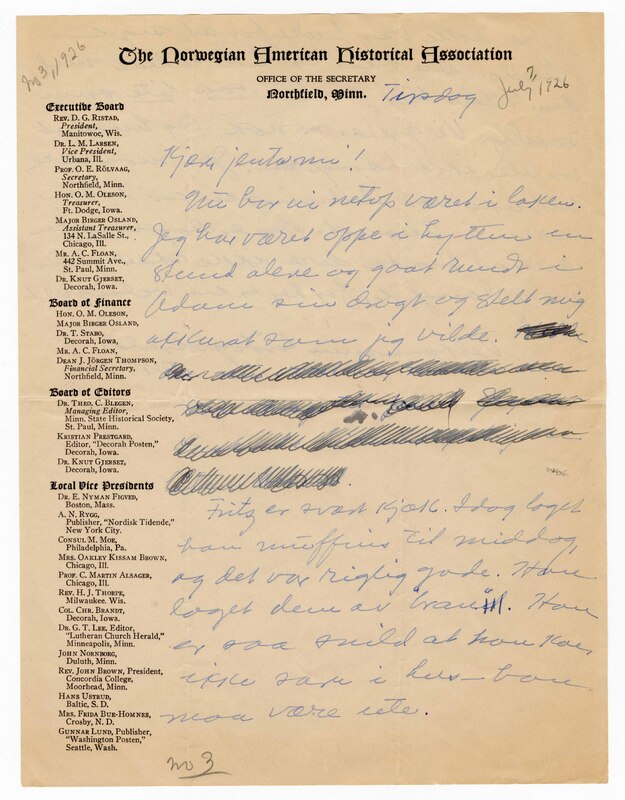 No 3, 1926
The Norwegian American Historical Association
OFFICE OF THE SECRETARY
Northfield, Minn.
Tirsdag
July 7, 1926
Executive Board
REV. D. G. RISTAD,
President,
Manitowoc, Wis.
DR. L. M. LARSEN,
Vice President,
Urbana, Ill.
PROF. O. E. RÖLVAAG,
Secretary,
Northfield, Minn.
HON. O. M. OLESON,
Treasurer,
Ft. Dodge, Iowa.
MAJOR BIRGER OSLAND,
Assistant Treasurer,
134 N. LaSalle St.,
Chicago, Ill.
MR. A. C. FLOAN,
442 Summit Ave.,
St. Paul, Minn.
DR. KNUT GJERSET,
Decorah, Iowa.
Board of Finance
HON. O. M. OLESON,
MAJOR BIRGER OSLAND,
DR. T. STABO,
Decorah, Iowa,
MR. A. C. FLOAN,
DEAN J. JÖRGEN THOMPSON,
Financial Secretary,
Northfield, Minn.
Board of Editors
DR. THEO. C. BLEGEN,
Managing Editor,
Minn. State Historical Society,
St. Paul, Minn.
KRISTIAN PRESTGARD,
Editor, "Decorah Posten,"
Decorah, Iowa.
DR. KNUT GJERSET,
Decorah, Iowa.
Local Vice Presidents
DR. E. NYMAN FIGVED,
Boston, Mass.
A. N. RYGG,
Publisher, "Nordisk Tidende,"
New York City.
CONSUL M. MOE,
Philadelphia, Pa.
MRS. OAKLEY KISSAM BROWN,
Chicago, Ill.
PROF. C. MARTIN ALSAGER,
Chicago, Ill.
REV. H. J. THORPE,
Milwaukee. Wis.
COL. CHR. BRANDT,
Decorah, Iowa.
DR. G. T. LEE, Editor,
"Lutheran Church Herald,"
Minneapolis, Minn.
JOHN NORNBORG,
Duluth, Minn.
REV. JOHN BROWN, President,
Concordia College,
Moorhead, Minn.
HANS USTRUD,
Baltic, S. D.
MRS. FRIDA BUE-HOMNES,
Crosby, N. D.
GUNNAR LUND, Publisher,
"Washington Posten,"
Seattle, Wash.
Kjære jenta mi!
Nu har vi netop været i laken.
Jeg har været oppe i hytten en
stund alene og gaat rundt i
Adam sin dragt og stelt mig
akkurat som jeg vilde.
Fritz er svært kjæk. Idag laget
han muffins til middag,
og det var rigtig gode. Han
laget dem av "bran". Han
er saa snild at han kan
ikke være i hus – han
maa være ute.
No 3